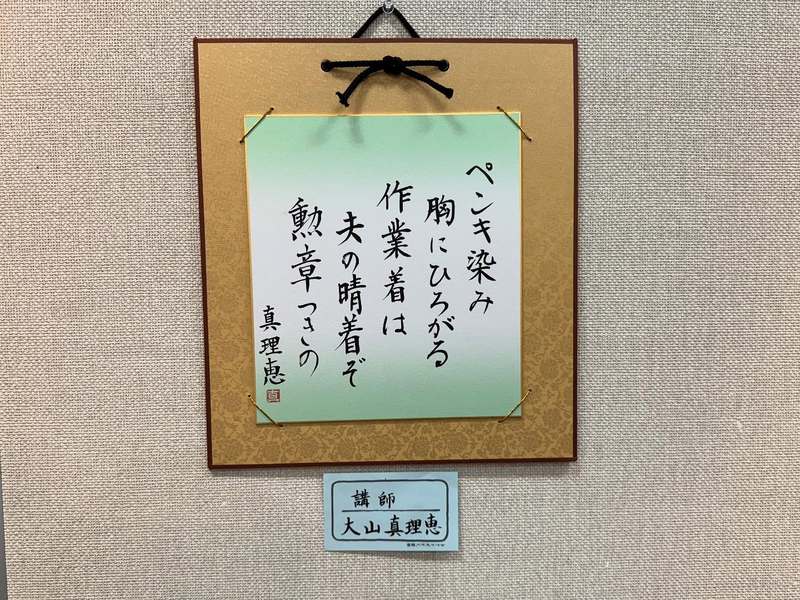 ペンキ染み
胸にひろがる
作業着は
夫の晴着ぞ
勲章つきの
真理恵
講師
大山真理恵